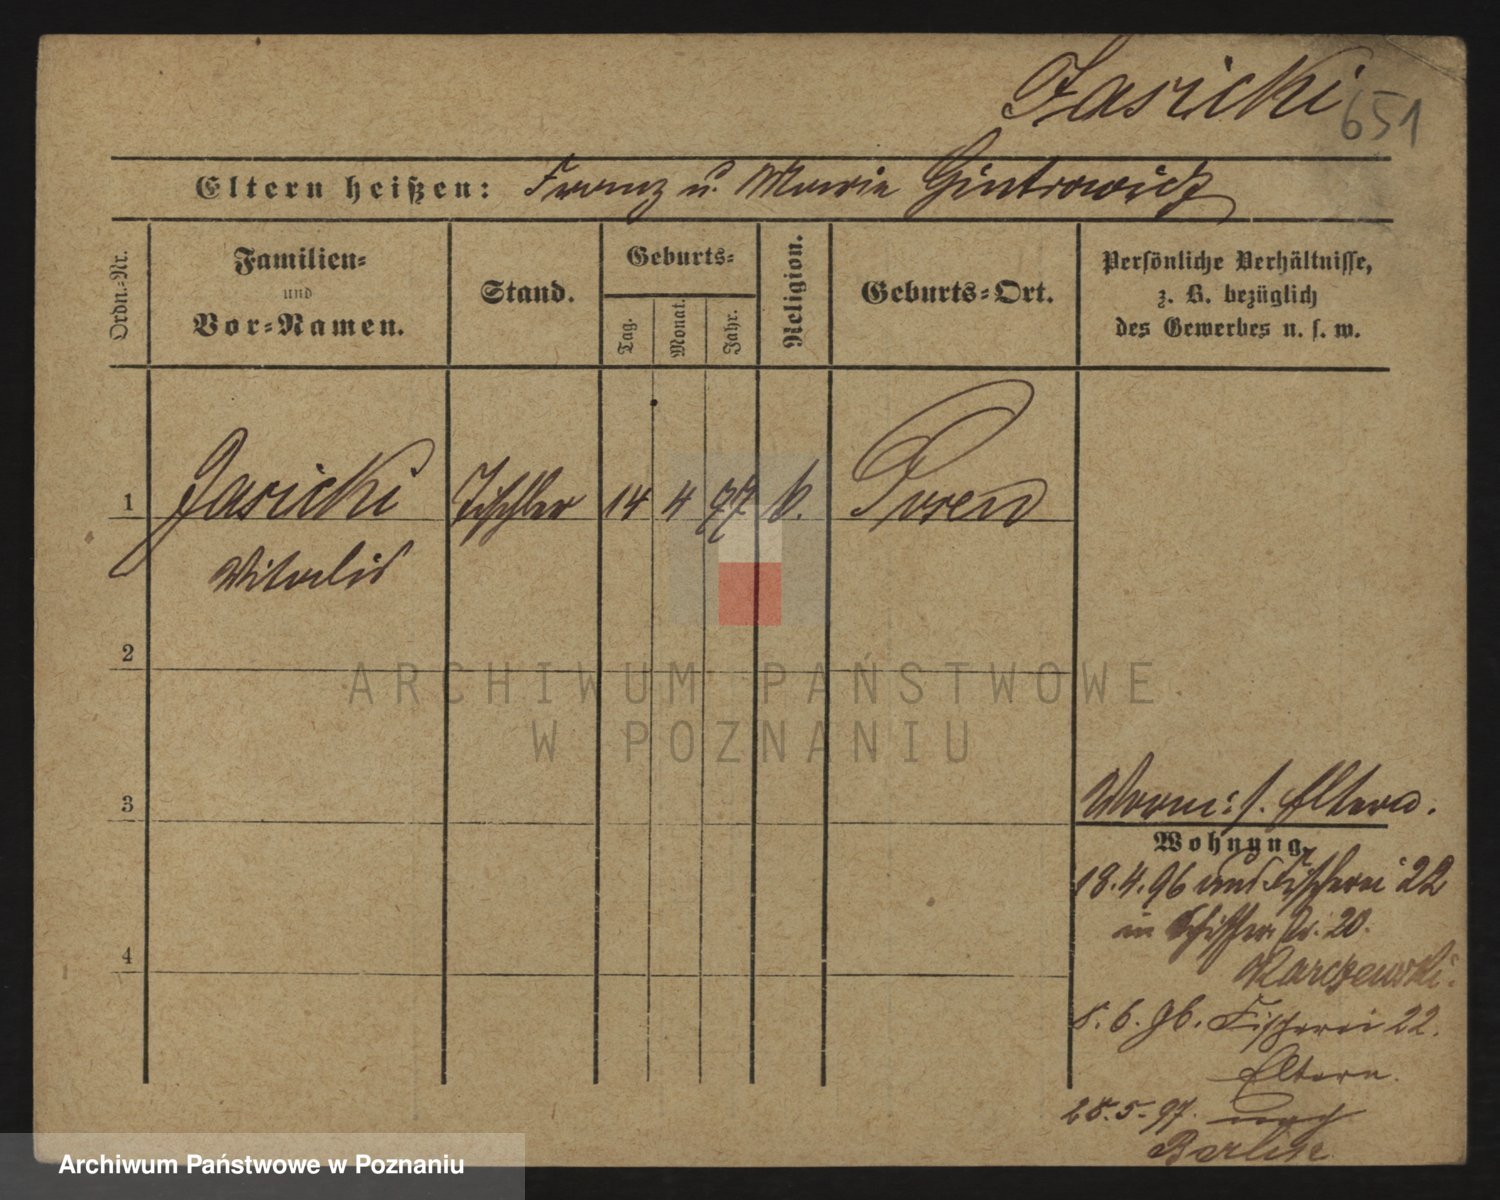 Jasicki
651
Eltern heißen: Franz u. Marie Gintrowicz
Ordn.-Nr.
Familien-
und
Vor-Namen.
Stand.
Geburts-
Tag.
Monat.
Jahr.
Religion.
Geburts-Ort.
Persönliche Verhältnisse,
z. B. bezüglich
des Gewerbes u. s. w.
1
Jasicki
Tischler
14
4
77
k.
Posen
Vitalis
2
3
4
Vorm: s. Eltern.
Wohnung.
18.4.96 aus Fischerei 22
in Schifferstr. 20.
Karczewski.
8.6.96. Fischerei 22.
Eltern.
28.5.97. nach
Berlin
ARCHIWUM PAŃSTWOWE
W POZNANIU
Archiwum Państwowe w Poznaniu